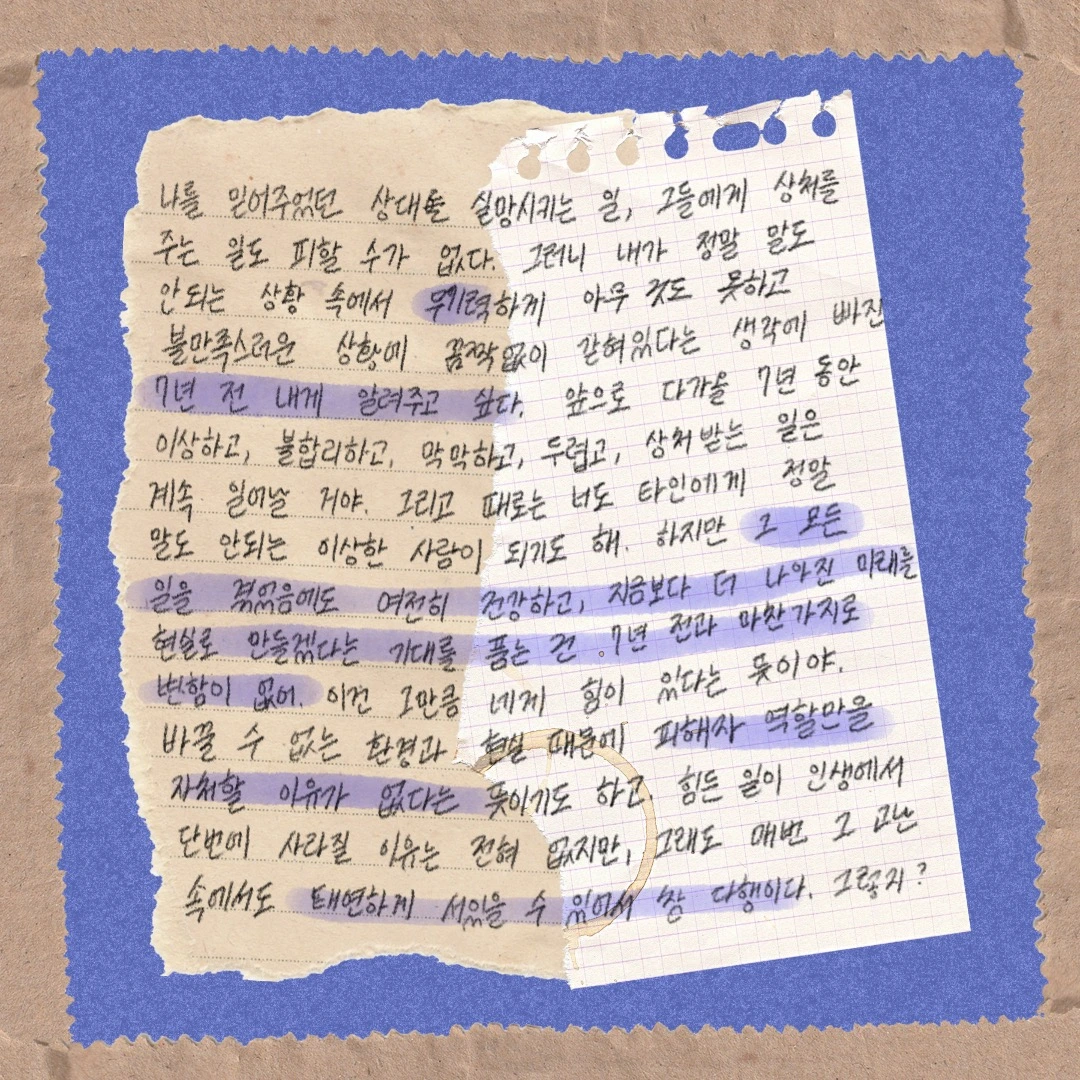 나를 믿어주었던 상대를 실망시키는 일, 그들에게 상처를
주는 일도 피할 수가 없다. 그러니 내가 정말 말도
안되는 상황 속에서 무기력하게 아무 것도 못하고
불만족스러운 상황에 꼼짝없이 갇혀있다는 생각에 빠진
7년 전 내게 알려주고 싶다. 앞으로 다가올 7년 동안
이상하고, 불합리하고, 막막하고, 두렵고, 상처받는 일은
계속 일어날 거야. 그리고 때로는 너도 타인에게 정말
말도 안되는 이상한 사람이 되기도 해. 하지만 그 모든
일을 겪었음에도 여전히 건강하고, 지금보다 더 나아진 미래를
현실로 만들겠다는 기대를 품는 건 7년 전과 마찬가지로
변함이 없어. 이건 그만큼 네게 힘이 있다는 뜻이야.
바꿀 수 없는 환경과 현실 때문에 피해자 역할만을
자처할 이유가 없다는 뜻이기도 하고 힘든 일이 인생에서
단번에 사라질 이유는 전혀 없지만, 그래도 매번 그 고난
속에서도 태연하게 서있을 수 있어서 참 다행이다. 그렇지?